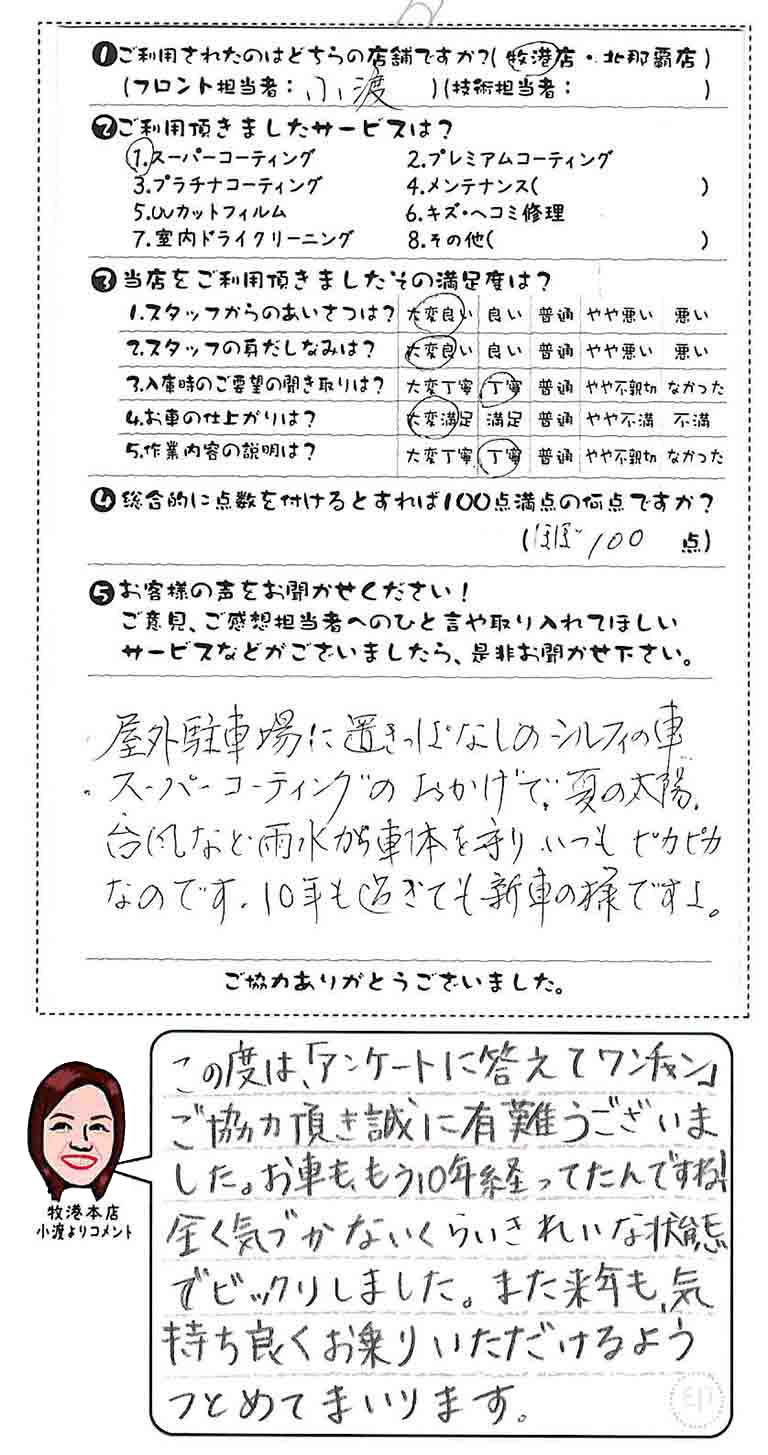 ❶ご利用されたのはどちらの店舗ですか?(牧港店・北那覇店)
(フロント担当者:小渡)(技術担当者: )
❷ご利用頂きましたサービスは?
1.スーパーコーティング 2.プレミアムコーティング
3.プラチナコーティング 4.メンテナンス( )
5.UVカットフィルム 6.キズ・ヘコミ修理
7.室内ドライクリーニング 8.その他( )
❸当店をご利用頂きましたその満足度は?
1.スタッフからのあいさつは? 大変良い 良い 普通 やや悪い 悪い
2.スタッフの身だしなみは? 大変良い 良い 普通 やや悪い 悪い
3.入庫時のご要望の聞き取りは? 大変丁寧 丁寧 普通 やや不親切 なかった
4.お車の仕上がりは? 大変満足 満足 普通 やや不満 不満
5.作業内容の説明は? 大変丁寧 丁寧 普通 やや不親切 なかった
❹総合的に点数を付けるとすれば100点満点の何点ですか?
(ほぼ100 点)
❺お客様の声をお聞かせください!
ご意見、ご感想担当者へのひと言や取り入れてほしい
サービスなどがございましたら、是非お聞かせ下さい。
屋外駐車場に置きっぱなしのシルフィの車
スーパーコーティングのおかげで、夏の太陽、
台風など雨水から車体を守り、いつもピカピカ
なのです。10年も過ぎても新車の様ですよ。
ご協力ありがとうございました。
この度は、「アンケートに答えてワンチャン」
ご協力頂き誠に有難うございま
した。お車も、もう10年経ってたんですね!
全く気づかないくらいきれいな状態
でビックリしました。また来年も、気
持ち良くお乗りいただけるよう
つとめてまいります。
牧港本店
小渡よりコメント
印